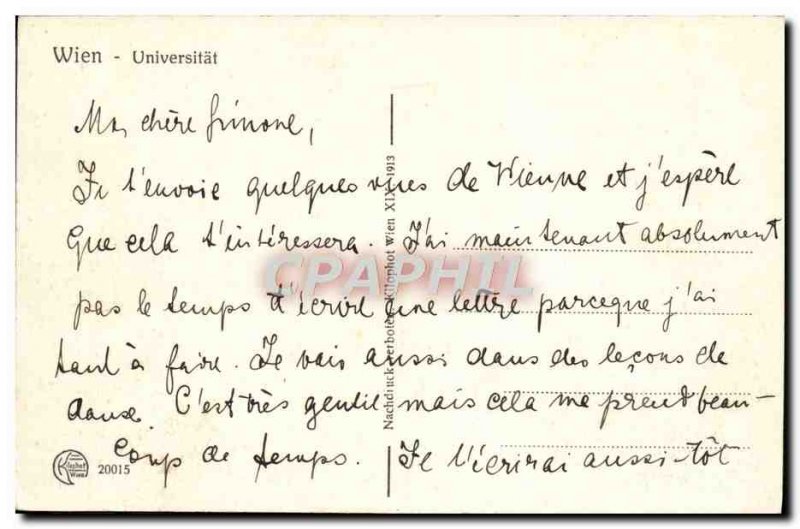 Wien - Universität
Ma chère Simone,
Je t'envoie quelques vues de Vienne et j'espère
que cela t'intéressera. J'ai maintenant absolument
pas le temps d'écrire une lettre parceque j'ai
tant à faire. Je vais aussi dans des leçons de
danse. C'est très gentil mais cela me prend beau-
coup de temps. Je t'écrirai aussi-tôt
Nachdruck verboten, Kilophot Wien XIX - 1913
CPAPHIL
Kilophot
Wien
20015